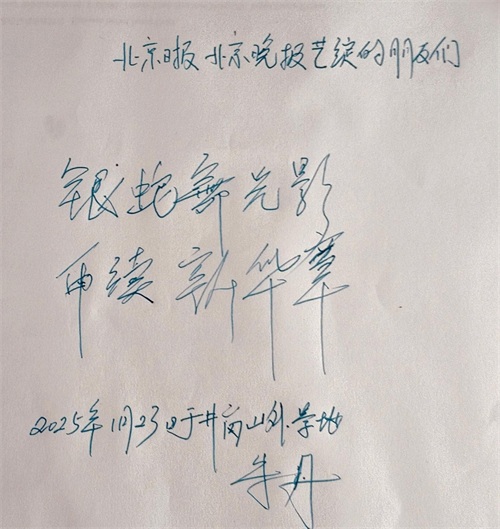 北京日报 北京晚报艺绽的朋友们
银蛇舞光影
再续新华章
2025年1月23日于井岗山外景地
朱丹